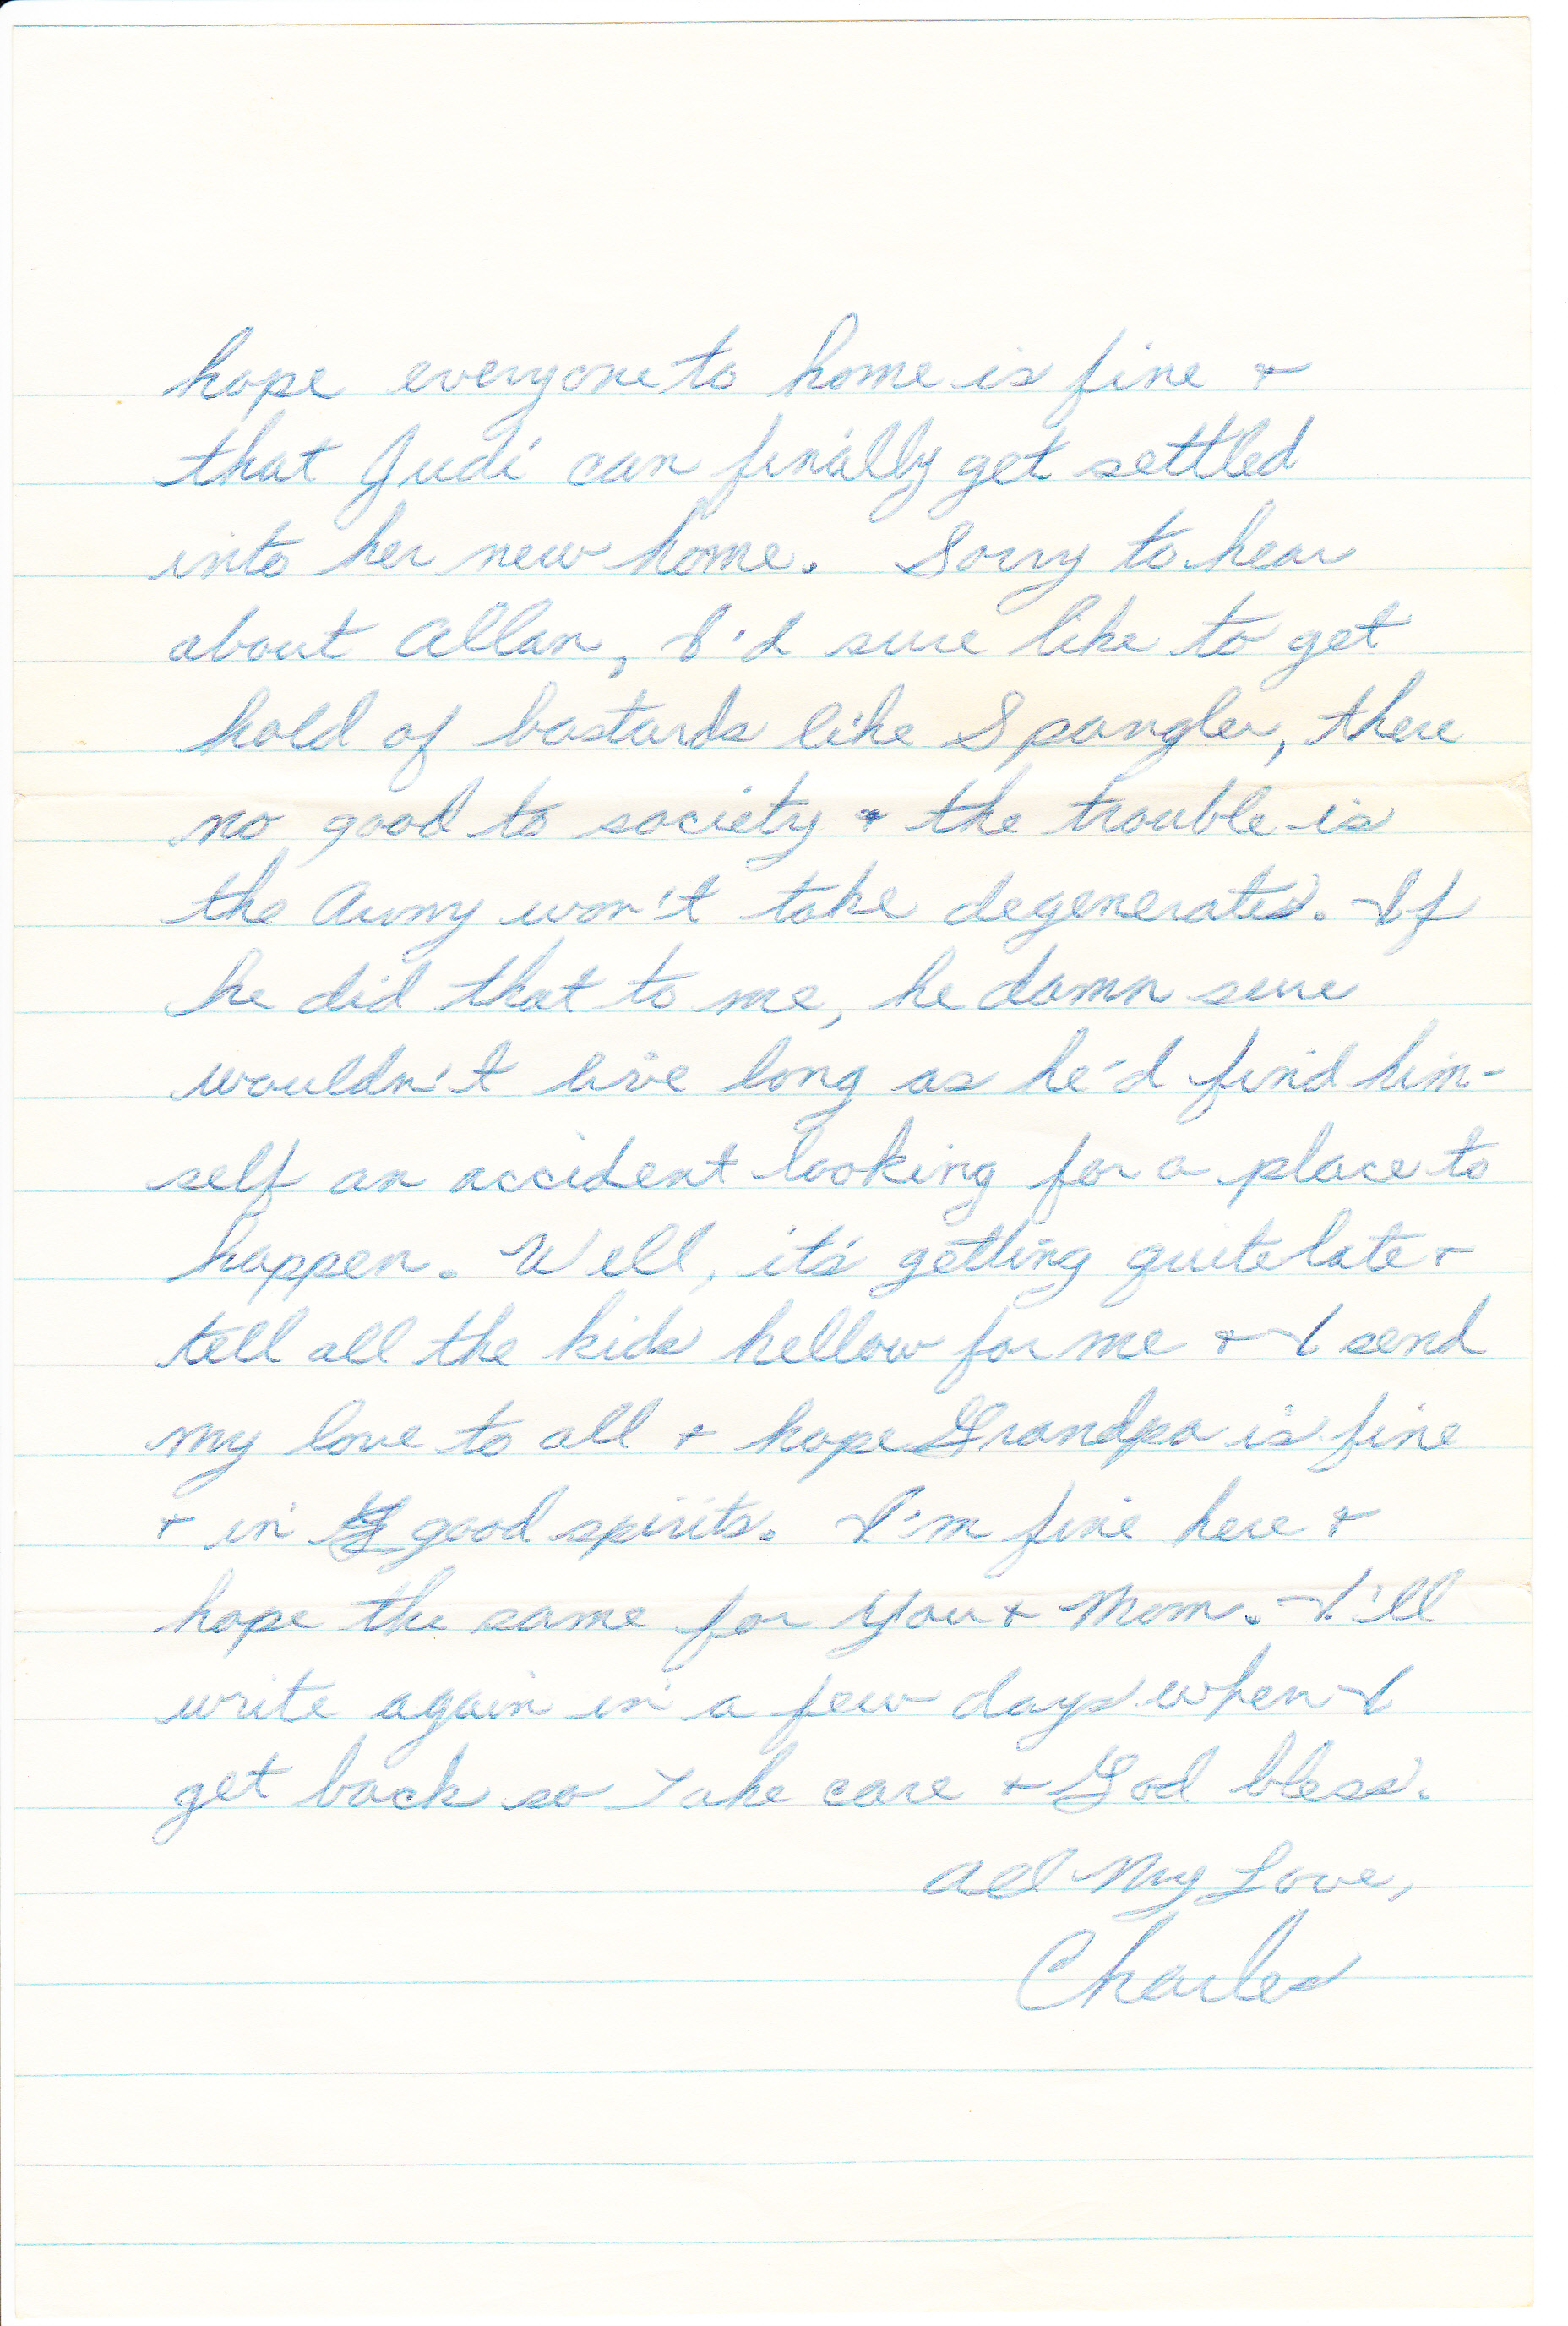 hope everyone to home is fine +
that Judi can finally get settled
into her new home. Sorry to hear
about Allan, I'd sure like to get
hold of bastards like Spangler, there
no good to society + the trouble is
the Army won't take degenerates. If
he did that to me, he damn sure
wouldn't live long as he'd find him-
self an accident looking for a place to
happen. Well, it's getting quite late +
tell all the kids hellow for me + I send
my love to all + hope Grandpa is fine
+ in good spirits. I'm fine here +
hope the same for you + Mom. I'll
write again in a few days when I
get back so Take care + God bless.
All My Love,
Charles